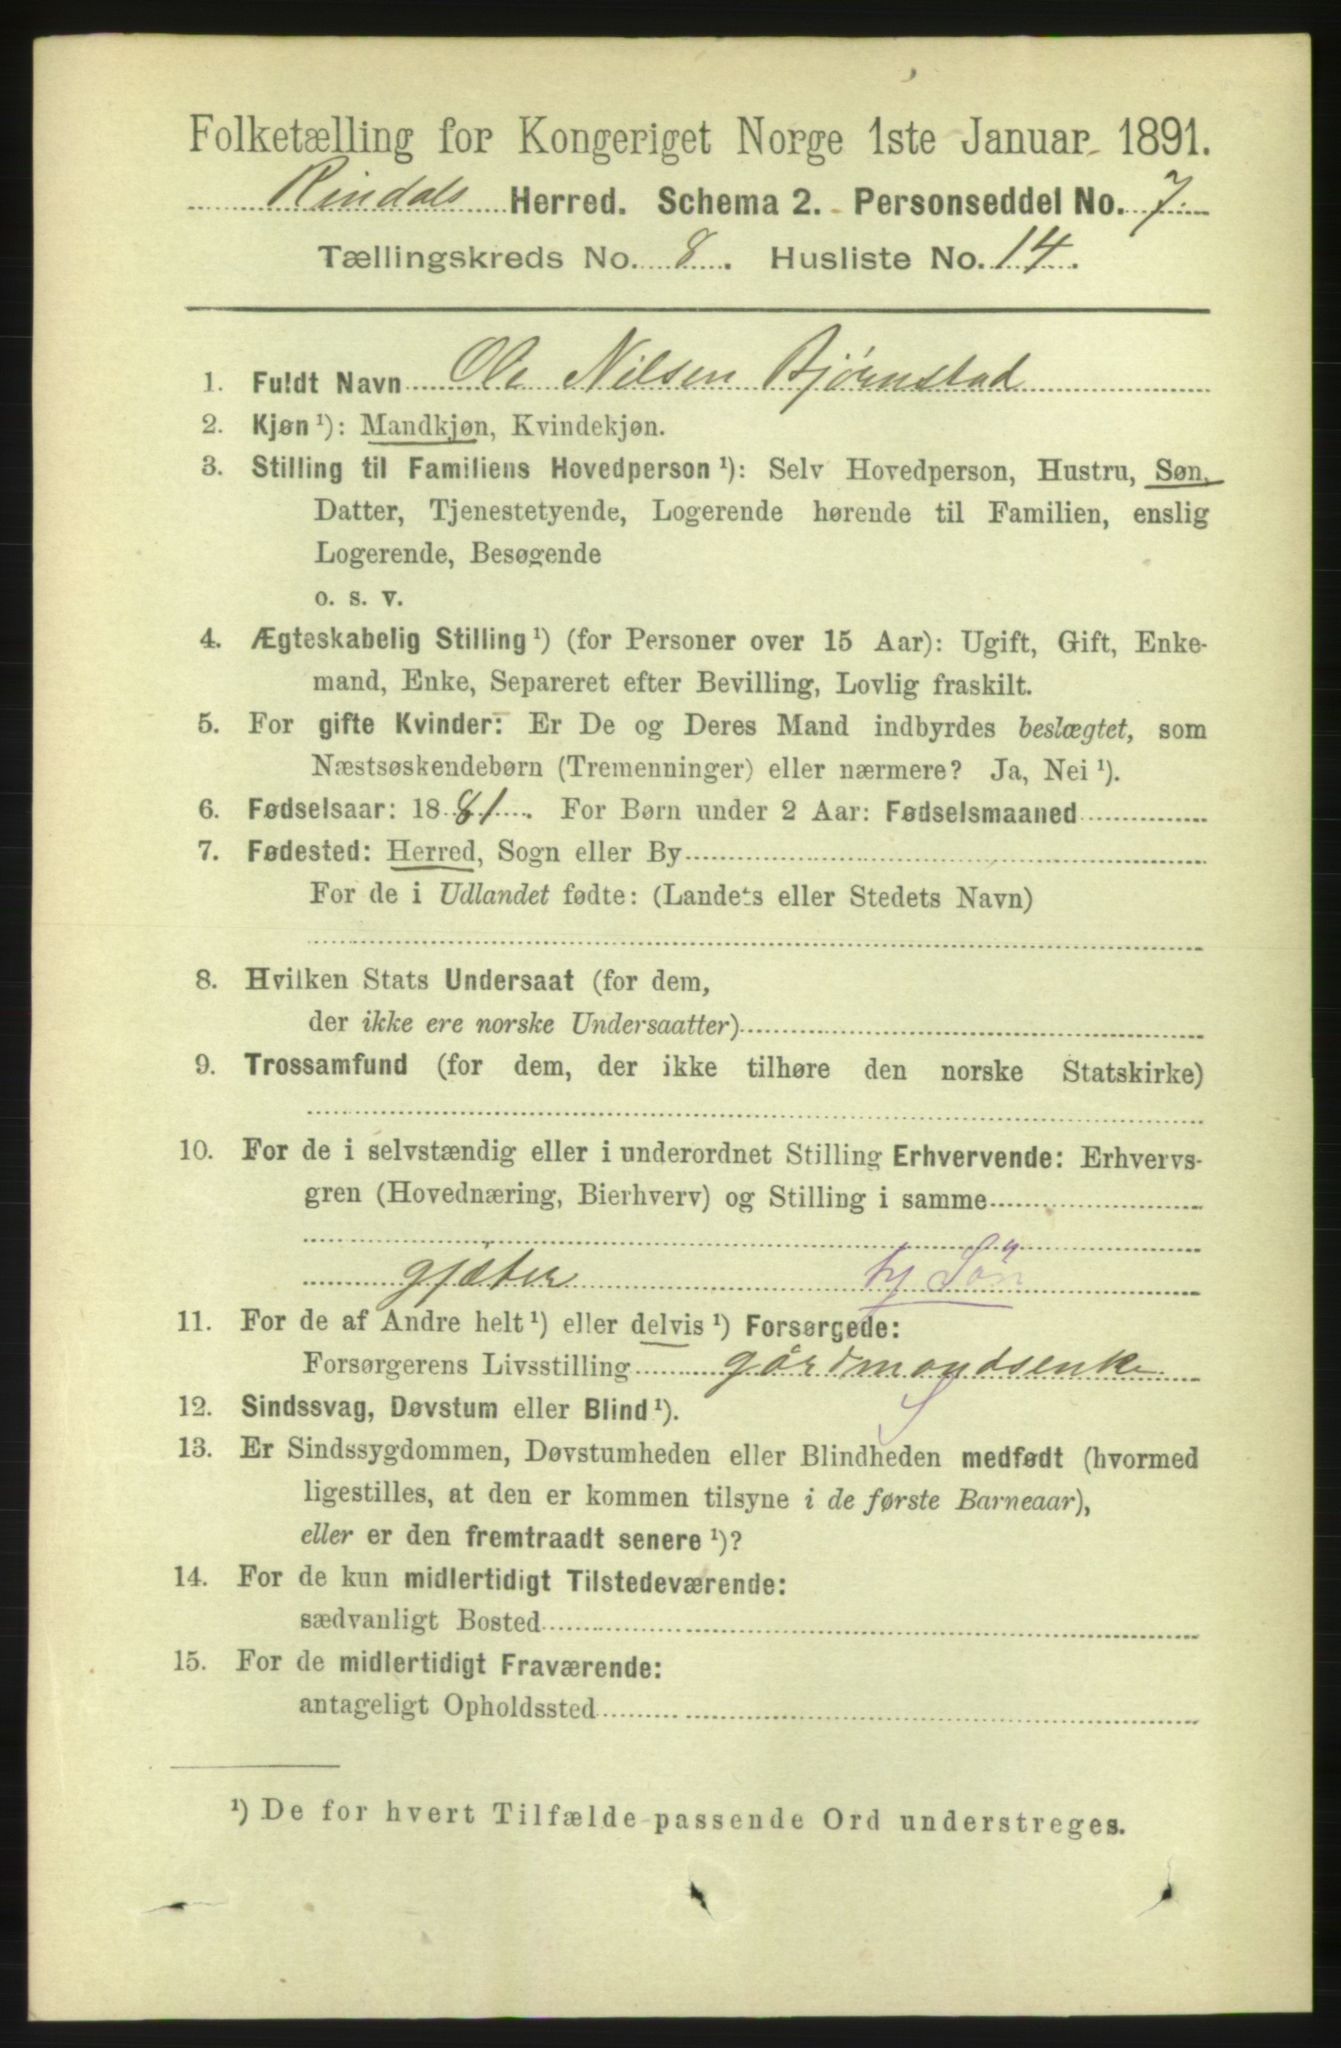 Folketælling for Kongeriget Norge 1ste Januar 1891.
Rindals Herred. Schema 2. Personseddel No. 7
Tællingskreds No. 8. Husliste No. 14.
1. Fuldt Navn Ole Nilsen Bjørnstad
2. Kjøn ¹): Mandkjøn, Kvindekjøn.
3. Stilling til Familiens Hovedperson ¹): Selv Hovedperson, Hustru, Søn,
Datter, Tjenestetyende, Logerende hørende til Familien, enslig
Logerende, Besøgende
o. s. v.
4. Ægteskabelig Stilling ¹) (for Personer over 15 Aar): Ugift, Gift, Enke-
mand, Enke, Separeret efter Bevilling, Lovlig fraskilt.
5. For gifte Kvinder: Er De og Deres Mand indbyrdes beslægtet, som
Næstsøskendebørn (Tremenninger) eller nærmere? Ja, Nei ¹).
6. Fødselsaar: 1881. For Børn under 2 Aar: Fødselsmaaned
7. Fødested: Herred, Sogn eller By
For de i Udlandet fødte: (Landets eller Stedets Navn)
8. Hvilken Stats Undersaat (for dem,
der ikke ere norske Undersaatter)
9. Trossamfund (for dem, der ikke tilhøre den norske Statskirke)
10. For de i selvstændig eller i underordnet Stilling Erhvervende: Erhvervs-
gren (Hovednæring, Bierhverv) og Stilling i samme
gjæter tj Søn
11. For de af Andre helt ¹) eller delvis ¹) Forsørgede:
Forsørgerens Livsstilling gårdmandsenke
S
12. Sindssvag, Døvstum eller Blind ¹).
13. Er Sindssygdommen, Døvstumheden eller Blindheden medfødt (hvormed
ligestilles, at den er kommen tilsyne i de første Barneaar),
eller er den fremtraadt senere ¹)?
14. For de kun midlertidigt Tilstedeværende:
sædvanligt Bosted
15. For de midlertidigt Fraværende:
antageligt Opholdssted
¹) De for hvert Tilfælde passende Ord understreges.